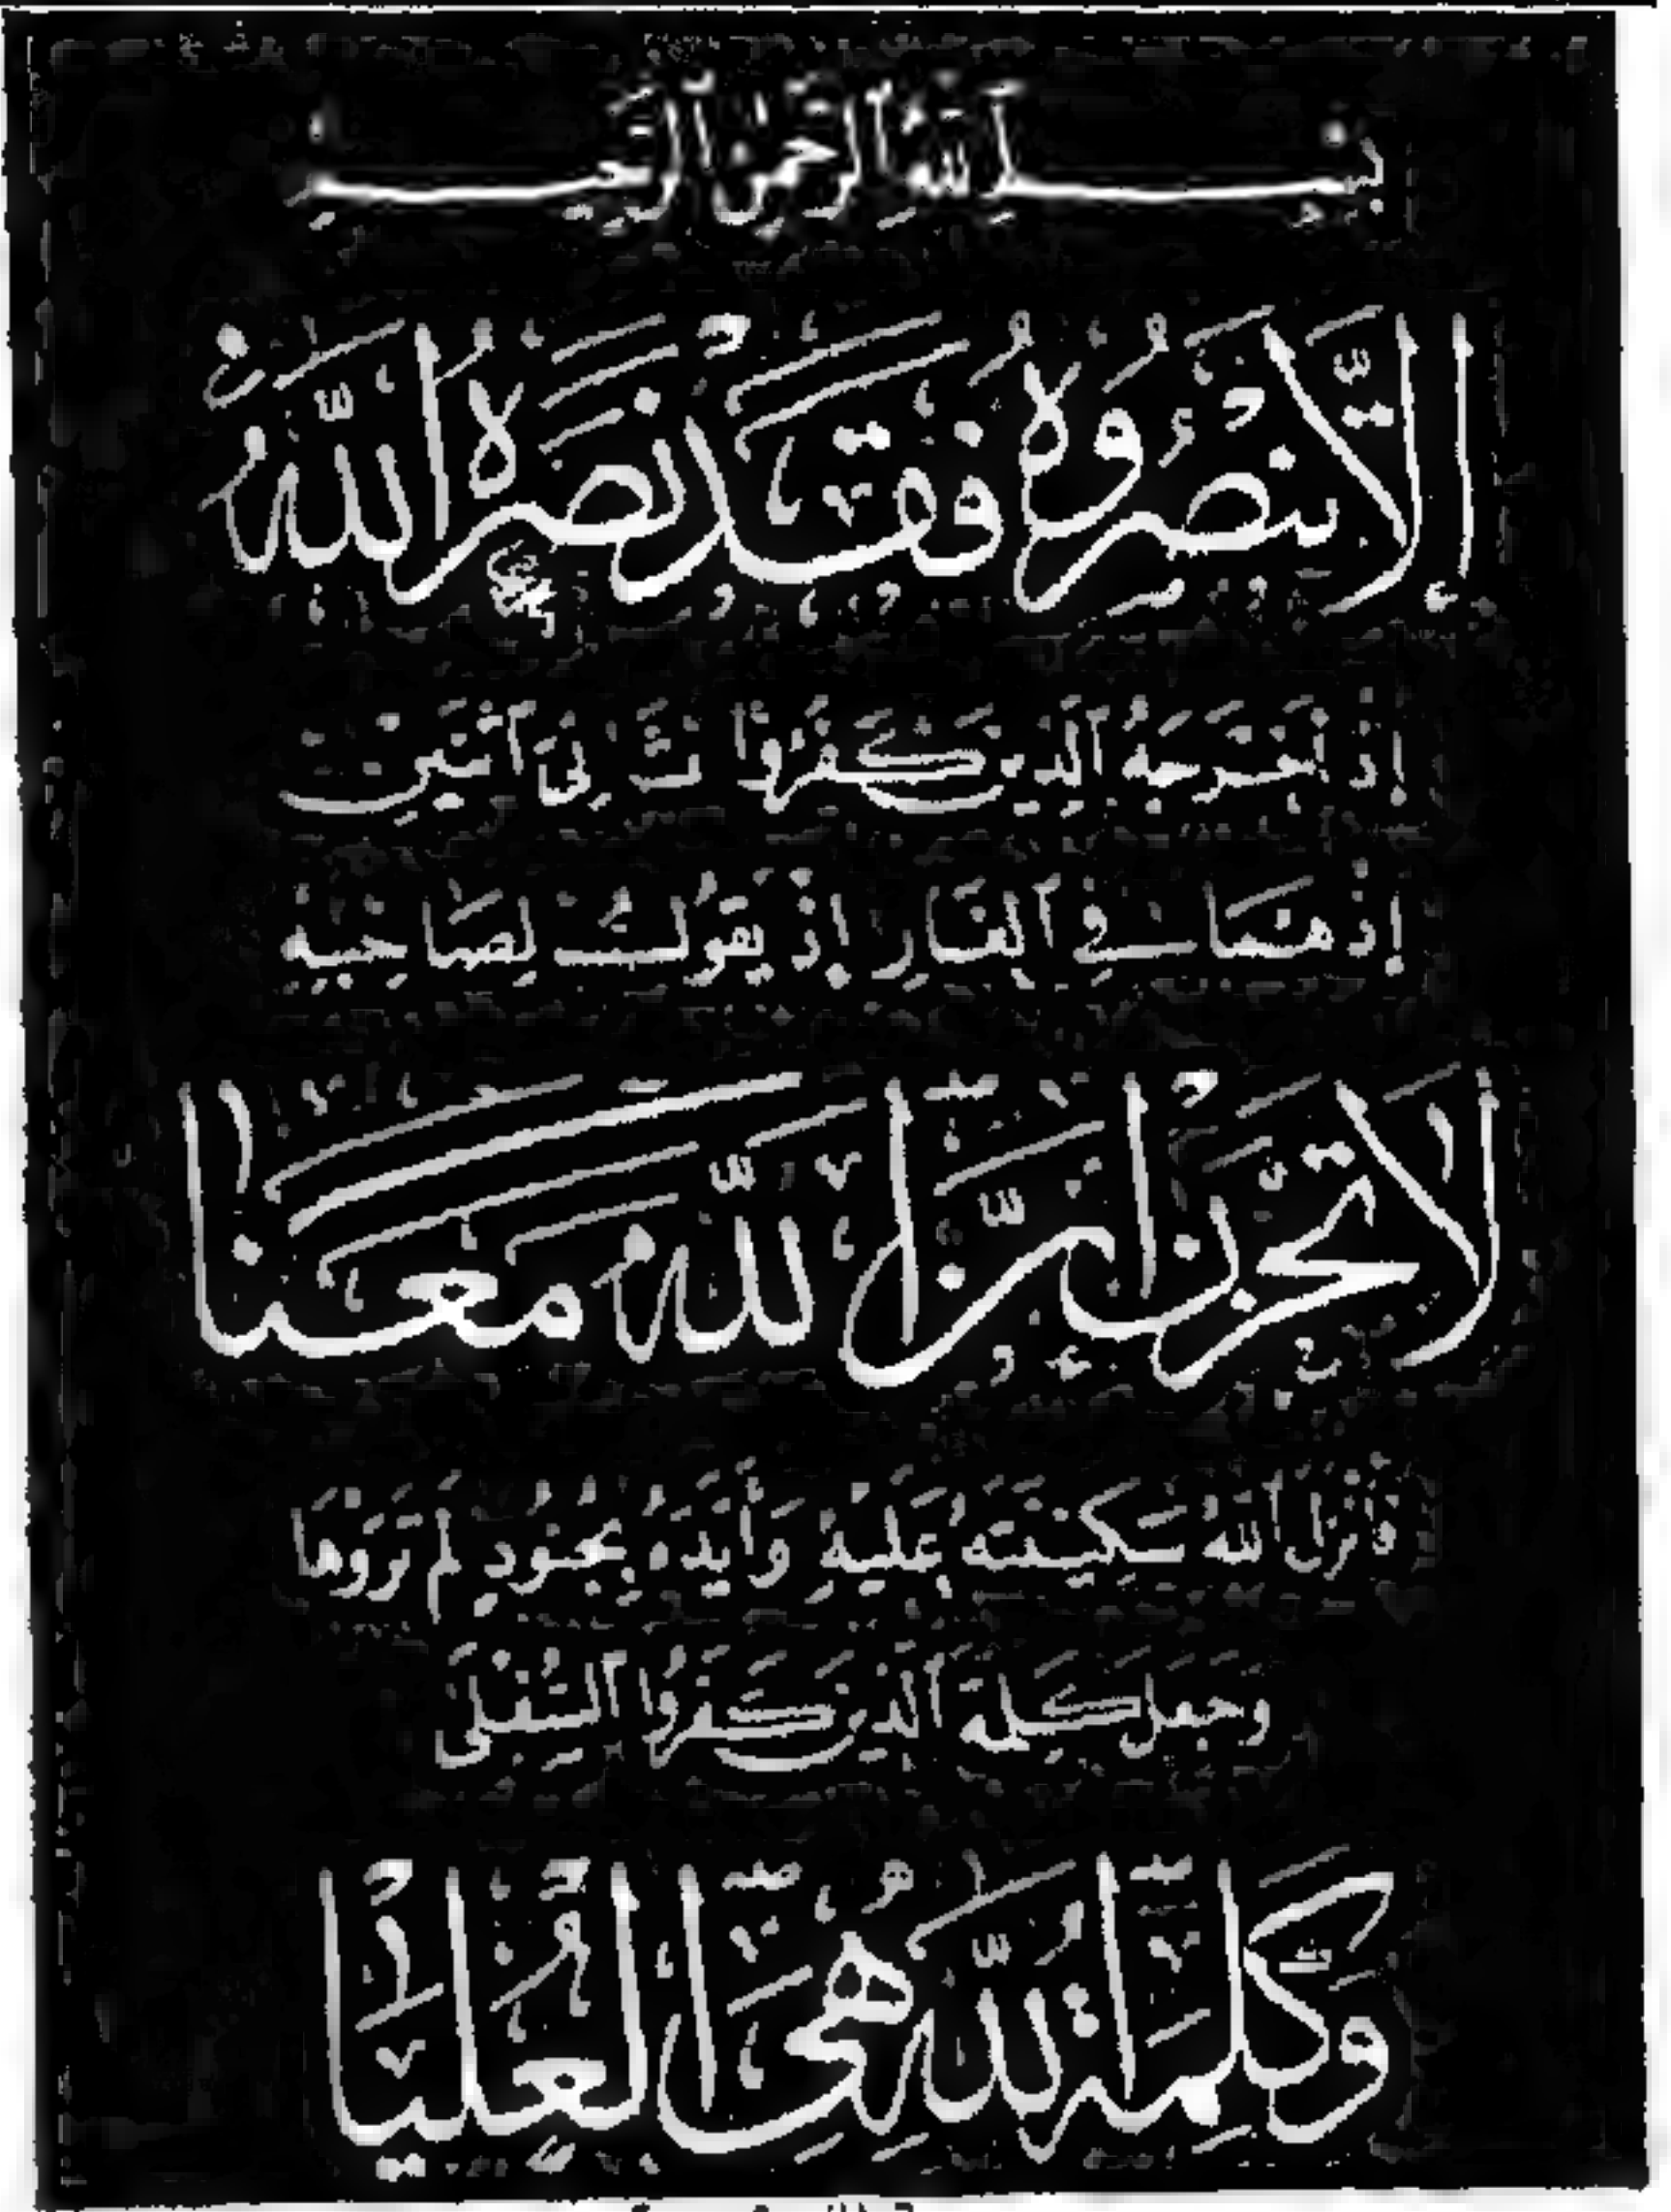 بسم الله الرحمن الرحيم
إلا تنصروه فقد نصره الله
إِذْ أَخْرَجَهُ ٱلَّذِينَ كَفَرُوا ثَانِيَ ٱثْنَيْنِ
إِذْ هُمَا فِي ٱلْغَارِ إِذْ يَقُولُ لِصَاحِبِهِ
لا تحزن إن الله معنا
فَأَنْزَلَ ٱللَّهُ سَكِينَتَهُ عَلَيْهِ وَأَيَّدَهُ بِجُنُودٍ لَمْ تَرَوْهَا
وَجَعَلَ كَلِمَةَ ٱلَّذِينَ كَفَرُوا ٱلسُّفْلَى
وكلمة الله هي العليا